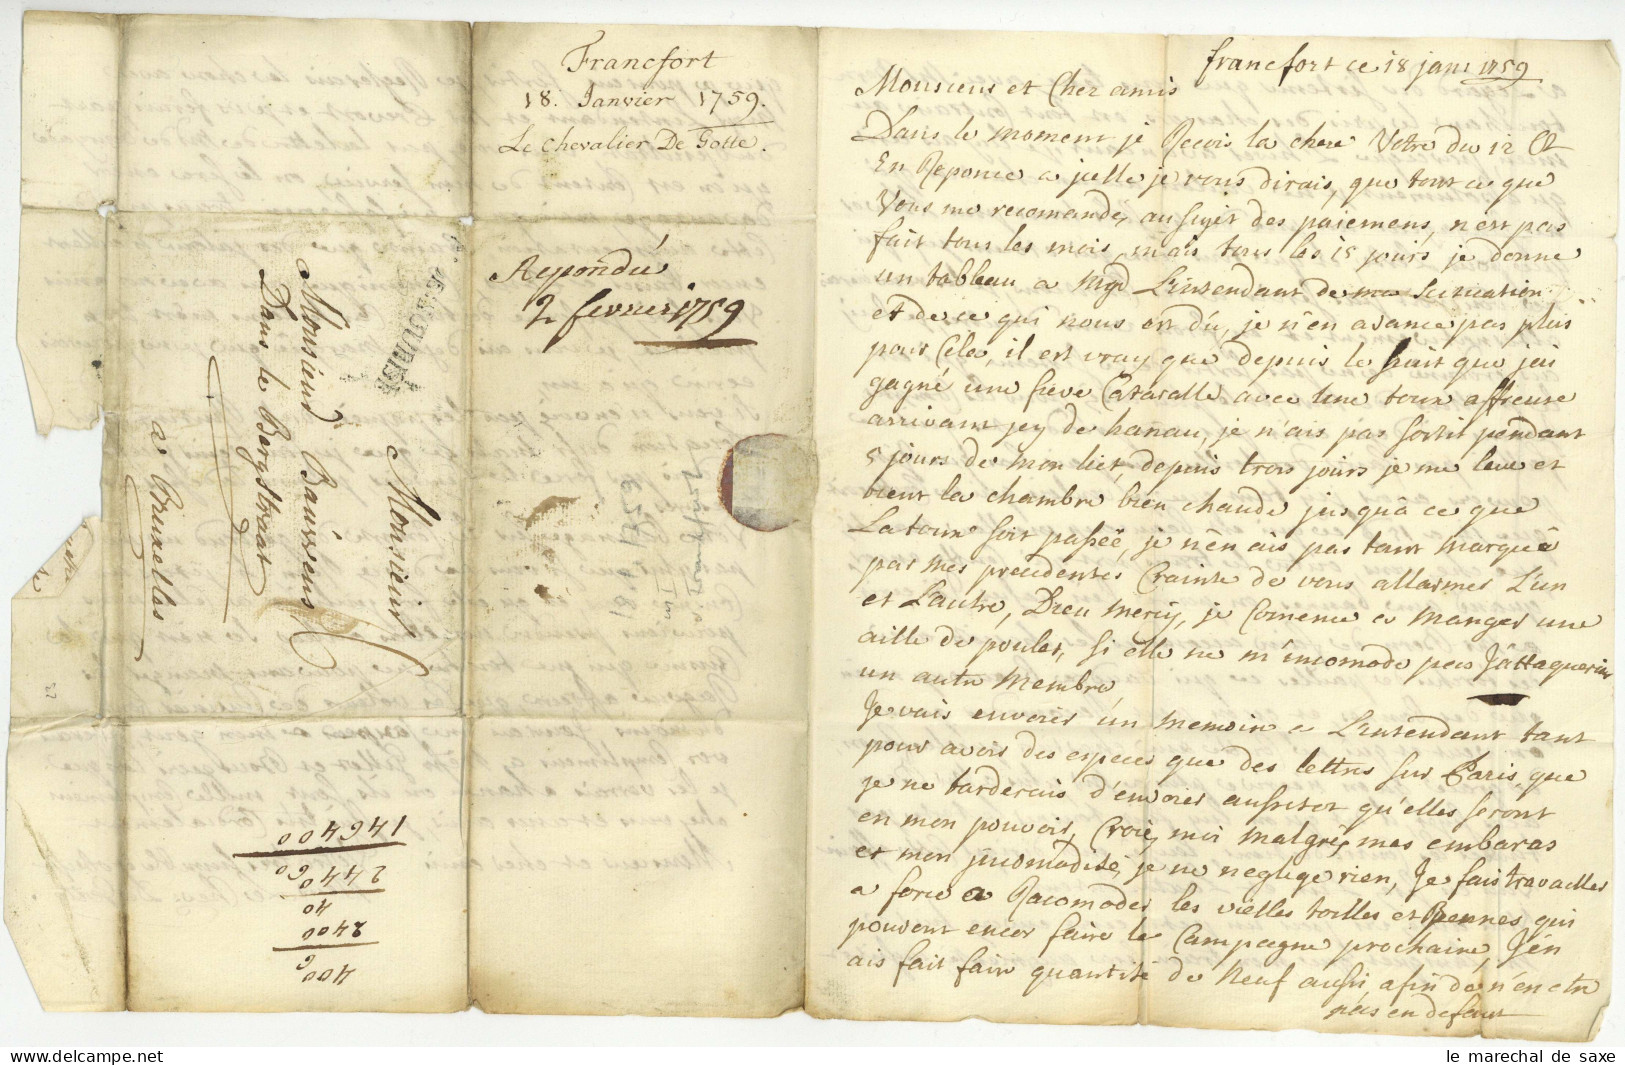 Francfort
18. Janvier 1759.
Le Chevalier De Gotte.
Repondu
2 fevrier 1759
Monsieur
Monsieur Bauwens
Dans le Bergstraat
a Bruxelles
146400
24400
40
2400
400
francfort ce 18 janv 1759
Monsieur et Cher amis
Dans le moment je Recois la chere Votre du 12 Ct
En Reponce a jcelle je vous dirais, que tout ce que
Vous me recomandes au sujet des paiemens, n'est pas
fait tous les mois, mais tous les 15 jours je donne
un tableau a Mgr L'intendant de ma Scituation
et de ce qui nous est dû, je n'en avance pas plus
pour Cela, il est vray que depuis le huit que jai
gagné une fieve Cataralle avec Une toux affreuse
arrivant jcy de hanau, je n'ais pas sortit pendant
5 jours de mon liet, depuis trois jours je me leve et
tient la chambre bien chaude jusqu'à ce que
La toux soit passée, je n'en ais pas tant marqué
par mes precedentes Crainte de vous allarmer L'un
et L'autre, Dieu mercy, je Comence a manger une
aille de poulet, si elle ne m'incomode pas J'attaquerais
un autre membre,
Je vais envoier un memoire a L'intendant tant
pour avoir des especes que des lettres sur Paris, que
je ne tarderais d'envoier aussitot qu'elles seront
en mon pouvoir, Croiez moi malgrez mes embaras
et mon jncomodité, je ne neglige rien, Je fais travailler
a force a Racomoder les vielles toilles et Pennes qui
pouvont encor faire le Campagne prochaine, J'en
ais fait faire quantité de Neuf aussi, afin de n'en etre
pas en defaut
le marechal de saxe